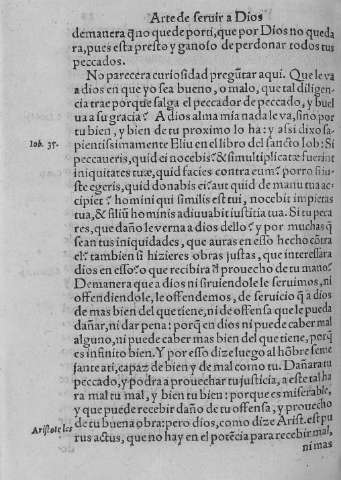 Arte de seruir a Dios
demanera q̃ no quede por ti, que por Dios no queda
ra, pues esta presto y ganoso de perdonar todos tus
peccados.
No parecera curiosidad pregũtar aqui. Que le va
a dios en que yo sea bueno, o malo, que tal diligen
cia trae porque salga el peccador de peccado, y buel
ua a su gracia? A dios alma mia nada le va, sino por
tu bien, y bien de tu proximo lo ha: y assi dixo sa-
Iob. 35.
pientissimamente Eliu en el libro del sancto Iob: Si
peccaueris, quid ei nocebis? & si multiplicatæ fuerint
iniquitates tuæ, quid facies contra eum? porro si ius-
te egeris, quid donabis ei? aut quid de manu tua ac-
cipiet? homini qui similis est tui, nocebit impietas
tua, & filiũ hominis adiuuabit iustitia tua. Si tu peca
res, que daño le verna a dios dello? y por muchas q̃
sean tus iniquidades, que auras en esso hecho cõtra
el? tambien si hizieres obras justas, que interessara
dios en esso? o que recibira d̃l prouecho de tu mano?
Demanera que a dios ni siruiendole le seruimos, ni
offendiendole, le offendemos, de seruicio q̃ a dios
de mas bien del que tiene, ni de offensa que le pueda
dañar, ni dar pena: porq̃ en dios ni puede caber mal
alguno, ni puede caber mas bien del que tiene, porq̃
es infinito bien. Y por esso dize luego al hõbre seme
jante a ti, capaz de bien y de mal como tu. Dañara tu
peccado, y podra a prouechar tu justicia, a este tal ha
ra mal tu mal, y bien tu bien: porque es miserable,
y que puede recebir daño de tu offensa, y prouecho
Aristoteles
de tu buena obra: pero dios, como dize Arist. est pu
rus actus, que no hay en el potẽcia para recebir mal,
ni mas